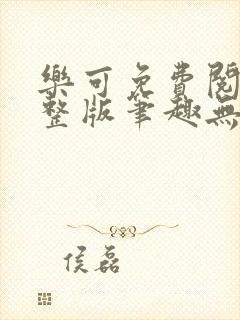 樂可免費閱
整版筆趣無
侯磊